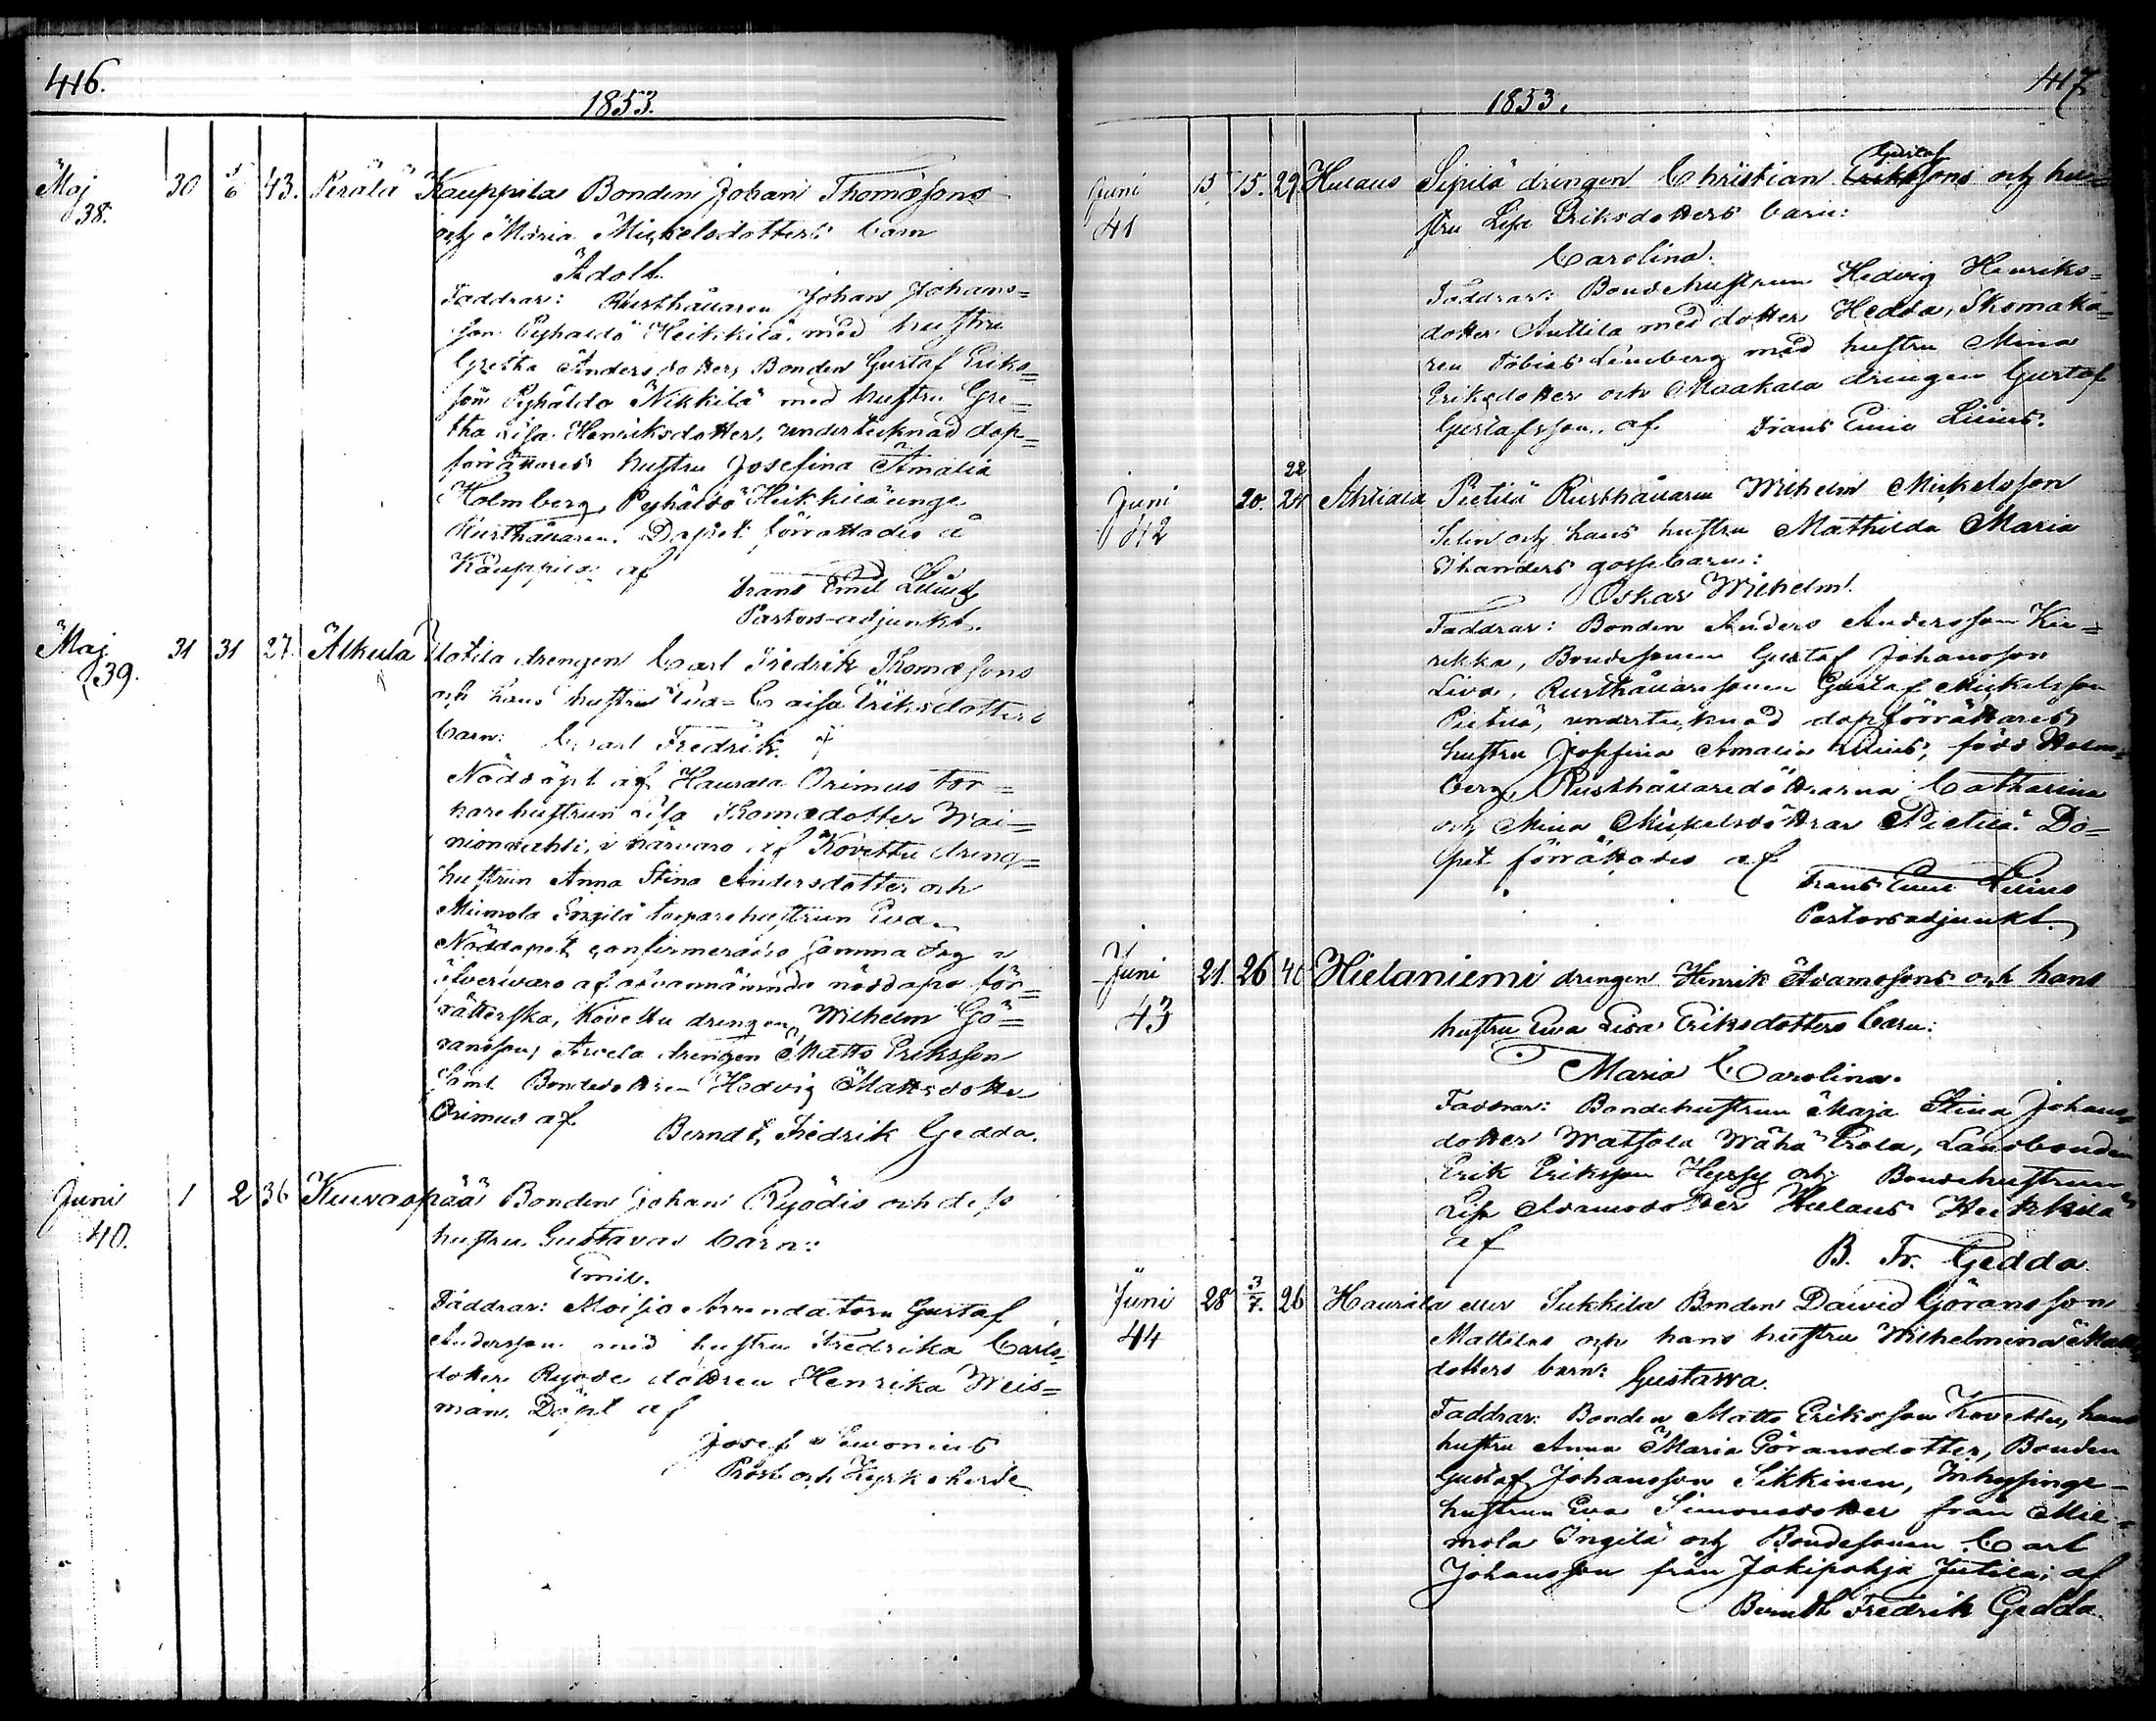 416.
1853.
Maj 30 5/6 43. Perälä Kauppila Bonden Johan Thomæsons
38. och Maria Mickelsdotters barn
Adolf.
Faddrar: Rusthållaren Johan Johans=
son Pyhältö Heikkilä, med hustru
Gretha Andersdotter, Bonden Gustaf Eriks=
son Pyhältö Nikkilä med hustru Gre=
tha Lisa Henriksdotter, undertecknad dop=
förrättares hustru Josefina Amalia
Holmberg, Pyhältö Heikkilä unge
Rusthållaren. Dopet förrättades å
Kauppila af
Frans Emil Lilius
Pastors-adjunkt.
Maj 31 31 27. Alkula drengen Carl Fredrik Thomæsons
39. och hans hustru Eva-Caisa Eriksdotters
barn: Carl Fredrik.
Nöddöpt af Haurala Orimus tor=
parehustrun Lisa Thomædotter Wai=
nionvahti, i närvaro af Kovettu dreng=
hustrun Anna Stina Andersdotter och
Miemola Ingilä torparehustrun Eva.
Nöddopet confirmerades samma dag i
öfvervaro af ofvannämnde nöddops för=
rätterska, Kovettu drengen Wilhelm Gö=
ransson, Arvela drengen Matts Eriksson
samt Bondedottren Hedvig Mattsdotter
Orimus af
Berndt Fredrik Gedda.
Juni 1 2 36 Kuivaspää Bonden Johan Ryödis och dess
40. hustru Gustavas barn:
Emil.
Faddrar: Moisio Arrendatorn Gustaf
Andersson med hustru Fredrika Carls=
dotter Ryöde dottren Henrika Weis=
man. Döpt af
Josef
Prost och Kyrkoherde
417
1853.
Juni 15 15. 29 Hulaus Sipilä drengen Christian Gustafsons och hu=
41 stru Lisa Eriksdotters barn:
Carolina.
Faddrar: Bondehustrun Hedvig Henriks=
dotter Anttila med dotter Hedda, Skomaka=
ren Tobias Lineberg med hustru Mina
Eriksdotter och Maakala drengen Gustaf
Gustafsson. af Frans Emil Lilius.
22
Juni 20. 24 Ahtiala Pietilä Rusthållaren Wilhelm Mickelsson
42 Selin och hans hustru Mathilda Maria
gossebarn:
Oskar Wilhelm.
Faddrar: Bonden Anders Andersson Kii=
rikka, Bondesonen Gustaf Johansson
Liva, Rusthållaresonen Gustaf Mickelsson
Pietilä, undertecknad dopförrättares
hustru Josefina Amalia Lilius, född Holm=
berg, Rusthållaredöttrarna Catharina
och Mina Mickelsdöttrar Pietilä. Do=
pet förrättades af
Frans Emil Lilius
Pastorsadjunkt.
Juni 21. 26 40 Hietaniemi drengen Henrik Adamssons och hans
43 hustru Eva Lisa Eriksdotters barn:
Maria Carolina.
Faddrar: Bondehustrun Maja Stina Johans=
dotter Matsola Wähä Erola, Landbonden
Erik Eriksson Heyssy och Bondehustrun
Lisa Adamsdotter Hulaus Heikkilä
af
B. Fr. Gedda.
Juni 28 3/7. 26 Haurala eller Sukkila Bonden Dawid Göransson
44 Mattilas och hans hustru Wilhelmina Matts
dotters barn: Gustawa.
Faddrar: Bonden Matts Eriksson Kovettu, hans
hustru Anna Maria Göransdotter, Bonden
Gustaf Johansson Sikkinen, Inhysinge=
hustrun Eva Simonsdotter från Mie=
mola Ingilä och Bondesonen Carl
Johansson från Jokipohja Jutila; af
Berndt Fredrik Gedda.